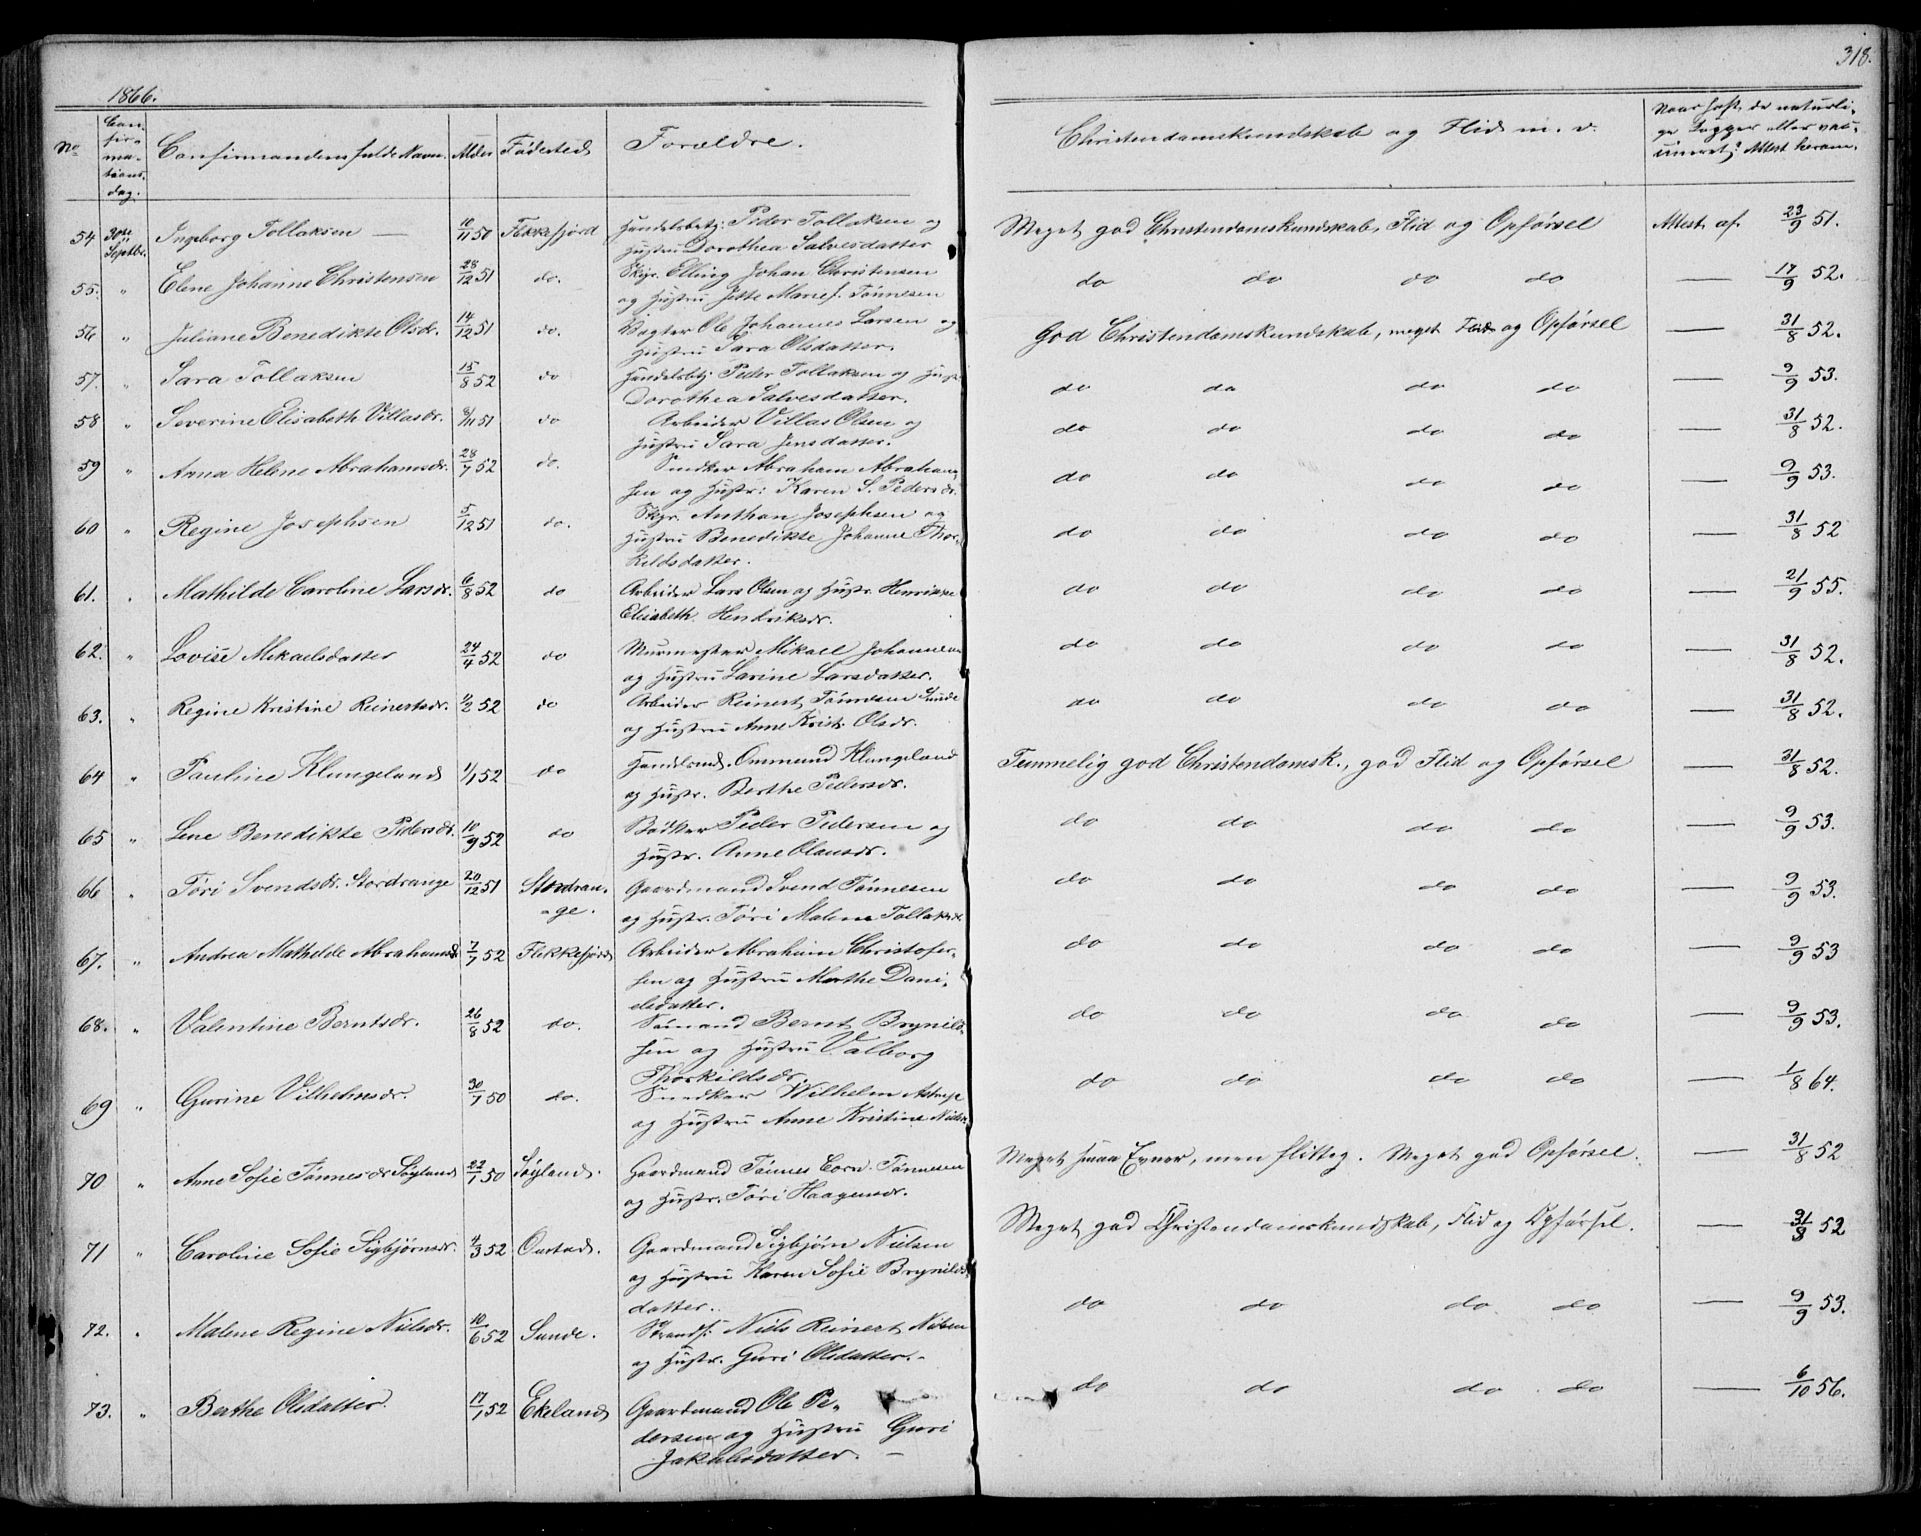 318.
1866.
No
Con-
fir-
ma-
tions-
dag.
Confirmandens fulde Navn.
Alder
Fødested
Forældre.
Christendomskundskab og Flid m. v.
Naar haft de naturli-
ge Kopper eller vac-
cineret? Attest herom.
54 30te Septbr. Ingborg Tollaksen — 10/11 50 Flekkefjord Handelsbetj. Peder Tollaksen og
Hustru Dorothea Salvesdatter
Meget god Christendomskundskab, Flid og Opførsel Attest af 23/9 51.
55. " Elene Johanne Christensen 28/12 51 do. Skpr. Elling Johan Christensen
og Hustru Jette Marie f. Tønnesen
do do do do — 17/9 52.
56 " Juliane Benedikte Olsdr. 14/12 51 do. Vægter Ole Johannes Larsen og
Hustru Sara Olsdatter.
God Christendomskundskab, meget Flid og Opførsel — 31/8 52.
57. " Sara Tollaksen 15/8 52 do Handelsbetj. Peder Tollaksen og Hustr.
Dorothea Salvesdatter.
do do do do — 9/9 53.
58 " Severine Elisabeth Villasdr. 8/11 51 do Arbeider Villas Olsen og
Hustru Sara Jensdatter.
do do do do — 31/8 52.
59 " Anna Helene Abrahamsdr. 28/7 52 do. Snedker Abraham Abraham-
sen og Hustr: Karen S. Pedersdr.
do do do do — 9/9 53.
60 " Regine Josephsen 5/12 51 do. Skpr. Anthon Josephsen og
Hustru Benedikte Johanne Thor-
kildsdatter.
do do do do — 31/8 52
61. " Mathilde Caroline Larsdr. 6/8 52 do Arbeider Lars Olsen og Hustr. Henrikke
Elisabeth Hendriksdr.
do do do do — 21/9 55.
62. " Lovise Mikaelsdatter 24/4 52 do Murmester Mikael Johannesen
og Hustru Larine Larsdatter.
do do do do — 31/8 52.
63. " Regine Kristine Reinertsdr. 4/2 52 do Arbeider Reinert Tønnesen Sunde
og Hustru Anne Krist. Olsdr.
do do do do — 31/8 52.
64 " Pauline Klungeland 1/1 52 do Handelsmd. Ommund Klungeland
og Hustr. Berthe Pedersdr.
Temmelig god Christendomsk., god Flid og Opførsel — 31/8 52.
65 " Lene Benedikte Pedersdr. 10/9 52 do Bødker Peder Pedersen og
Hustr. Anne Olausdr.
do do do do — 9/9 53.
66 " Töri Svendsdr. Stordrange 20/12 51 Stordran-
ge. Gaardmand Svend Tønnesen
og Hustr. Töri Malene Tollaksdr.
do do do do — 9/9 53.
67. " Andrea Mathilde Abrahamsdr. 7/7 52 Flekkefjord Arbeider Abraham Christofer-
sen og Hustru Marthe Dani-
elsdatter.
do do do do — 9/9 53
68. " Valentine Berntsdr. 26/8 52 do. Sømand Bernt Brynild-
sen og Hustru Valborg
Thorkildsdr.
do do do do — 9/9 53.
69 " Gurine Vilhelmsdr. 30/7 50 do. Snedker Wilhelm
og Hustru Anne Kristine Nielsdr.
do do do do — 1/8 64.
70 " Anne Sofie Tønnesdr. Söyland 22/1 50 Söyland. Gaardmand Tönnes Corn. Tönnesen
og Hustr. Töri Haagensdr.
Meget smaa Evner, men flittig. Meget god Opførsel. — 31/8 52
71 " Caroline Sofie Sigbjørnsdr. 4/3 52 Oustad. Gaardmand Sigbjørn Nielsen
og Hustru Karen Sofie Brynilds-
datter.
Meget god Christendomskundskab, Flid og Opførsel. — 31/8 52
72. " Malene Regine Nielsdr. 10/6 52 Sunde. Strands. Niels Reinert Nilsen
og Hustr. Guri Olsdatter. -
do do do do — 9/9 53.
73. " Berthe Olsdatter. 17/1 52 Ekeland Gaardmand Ole Pe-
dersen og Hustru Guri
Jakobsdatter. —
do do do do — 6/10 56.